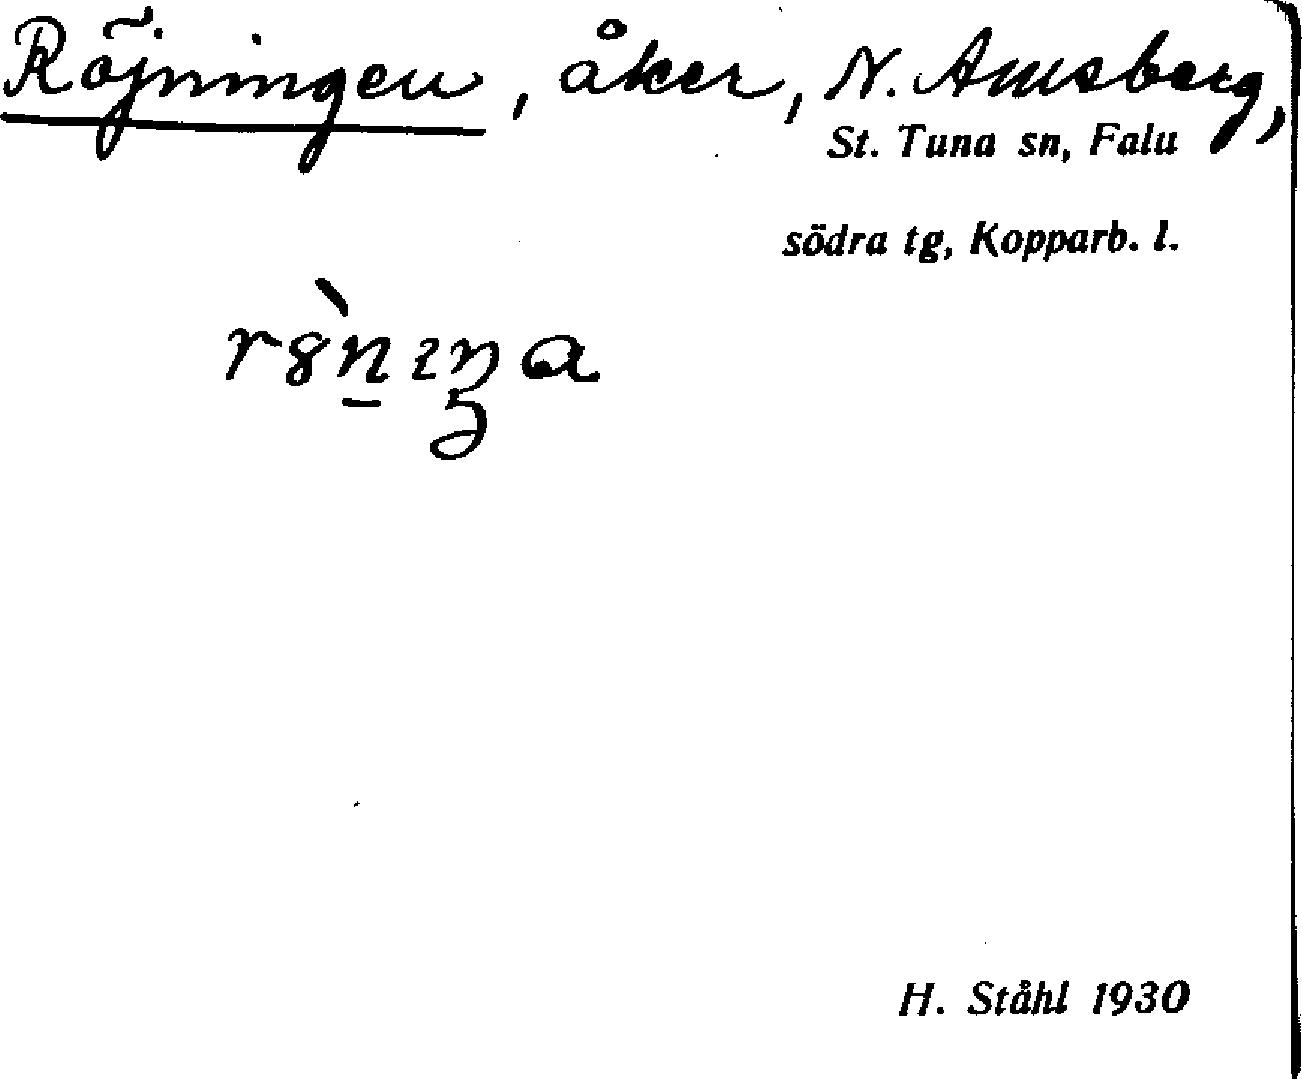 Röjningen, åker, N. Amsberg,
St. Tuna sn, Falu
södra tg, Kopparb. l.
H. Ståhl 1930